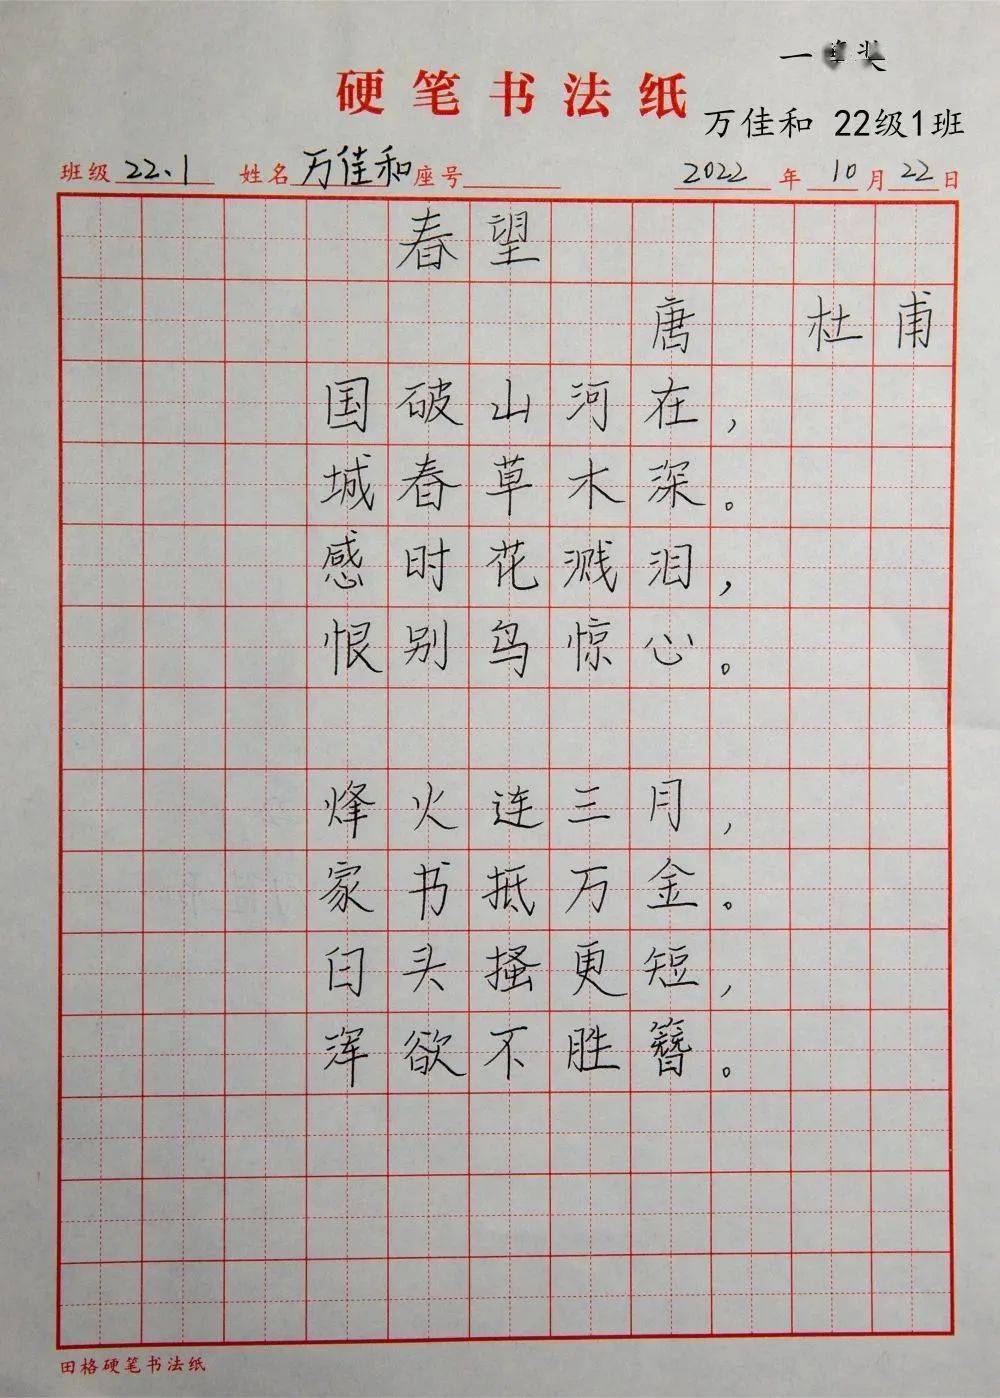 一等奖
硬笔书法纸
万佳和 22级1班
班级 22.1 姓名 万佳和 座号 2022 年 10 月 22 日
春望
唐 杜甫
国破山河在，
城春草木深。
感时花溅泪，
恨别鸟惊心。
烽火连三月，
家书抵万金。
白头搔更短，
浑欲不胜簪。
田格硬笔书法纸